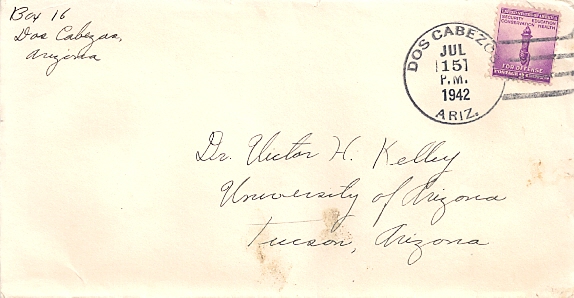 Box 16
Dos Cabezas,
Arizona
DOS CABEZO
JUL
15
P.M.
1942
ARIZ.
SECURITY EDUCATION
CONSERVATION HEALTH
FOR DEFENSE
Dr. Victor H. Kelley
University of Arizona
Tucson, Arizona